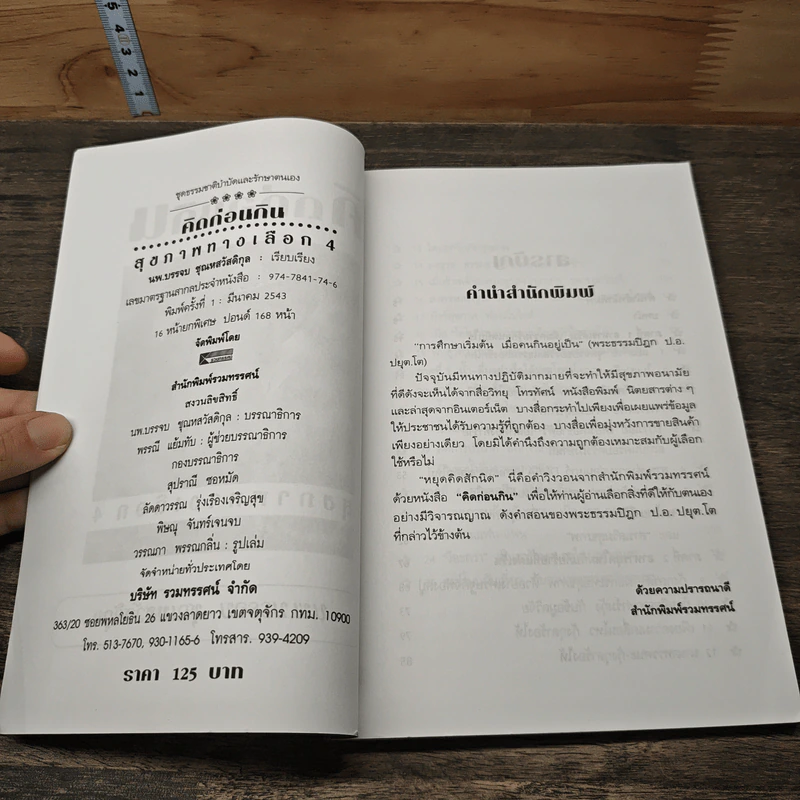 5
4
3
2
1
ชุดธรรมชาติบำบัดและรักษาตนเอง
คิดก่อนกิน
สุขภาพทางเลือก 4
นพ.บรรจบ ชุณหสวัสดิกุล : เรียบเรียง
เลขมาตรฐานสากลประจำหนังสือ : 974-7841-74-6
พิมพ์ครั้งที่ 1 : มีนาคม 2543
16 หน้ายกพิเศษ ปอนด์ 168 หน้า
จัดพิมพ์โดย
สำนักพิมพ์รวมทรรศน์
สงวนลิขสิทธิ์
นพ.บรรจบ ชุณหสวัสดิกุล : บรรณาธิการ
พรรณี แย้มทับ : ผู้ช่วยบรรณาธิการ
กองบรรณาธิการ
สุปราณี ซอหมัด
ลัดดาวรรณ รุ่งเรืองเจริญสุข
พิษณุ จันทร์เจนจบ
วรรณภา พรรณกลิ่น : รูปเล่ม
จัดจำหน่ายทั่วประเทศโดย
บริษัท รวมทรรศน์ จำกัด
363/20 ซอยพหลโยธิน 26 แขวงลาดยาว เขตจตุจักร กทม. 10900
โทร. 513-7670, 930-1165-6 โทรสาร. 939-4209
ราคา 125 บาท
คำนำสำนักพิมพ์
"การศึกษาเริ่มต้น เมื่อคนกินอยู่เป็น" (พระธรรมปิฎก ป.อ.
ปยุต.โต)
ปัจจุบันมีหนทางปฏิบัติมากมายที่จะทำให้มีสุขภาพอนามัย
ที่ดีดังจะเห็นได้จากสื่อวิทยุ โทรทัศน์ หนังสือพิมพ์ นิตยสารต่าง ๆ
และล่าสุดจากอินเตอร์เน็ต บางสื่อกระทำไปเพียงเพื่อเผยแพร่ข้อมูล
ให้ประชาชนได้รับความรู้ที่ถูกต้อง บางสื่อเพื่อมุ่งหวังการขายสินค้า
เพียงอย่างเดียว โดยมิได้คำนึงถึงความถูกต้องเหมาะสมกับผู้เลือก
ใช้หรือไม่
"หยุดคิดสักนิด" นี่คือคำวิงวอนจากสำนักพิมพ์รวมทรรศน์
ด้วยหนังสือ "คิดก่อนกิน" เพื่อให้ท่านผู้อ่านเลือกสิ่งที่ดีให้กับตนเอง
อย่างมีวิจารณญาณ ดังคำสอนของพระธรรมปิฎก ป.อ. ปยุต.โต
ที่กล่าวไว้ข้างต้น
ด้วยความปรารถนาดี
สำนักพิมพ์รวมทรรศน์